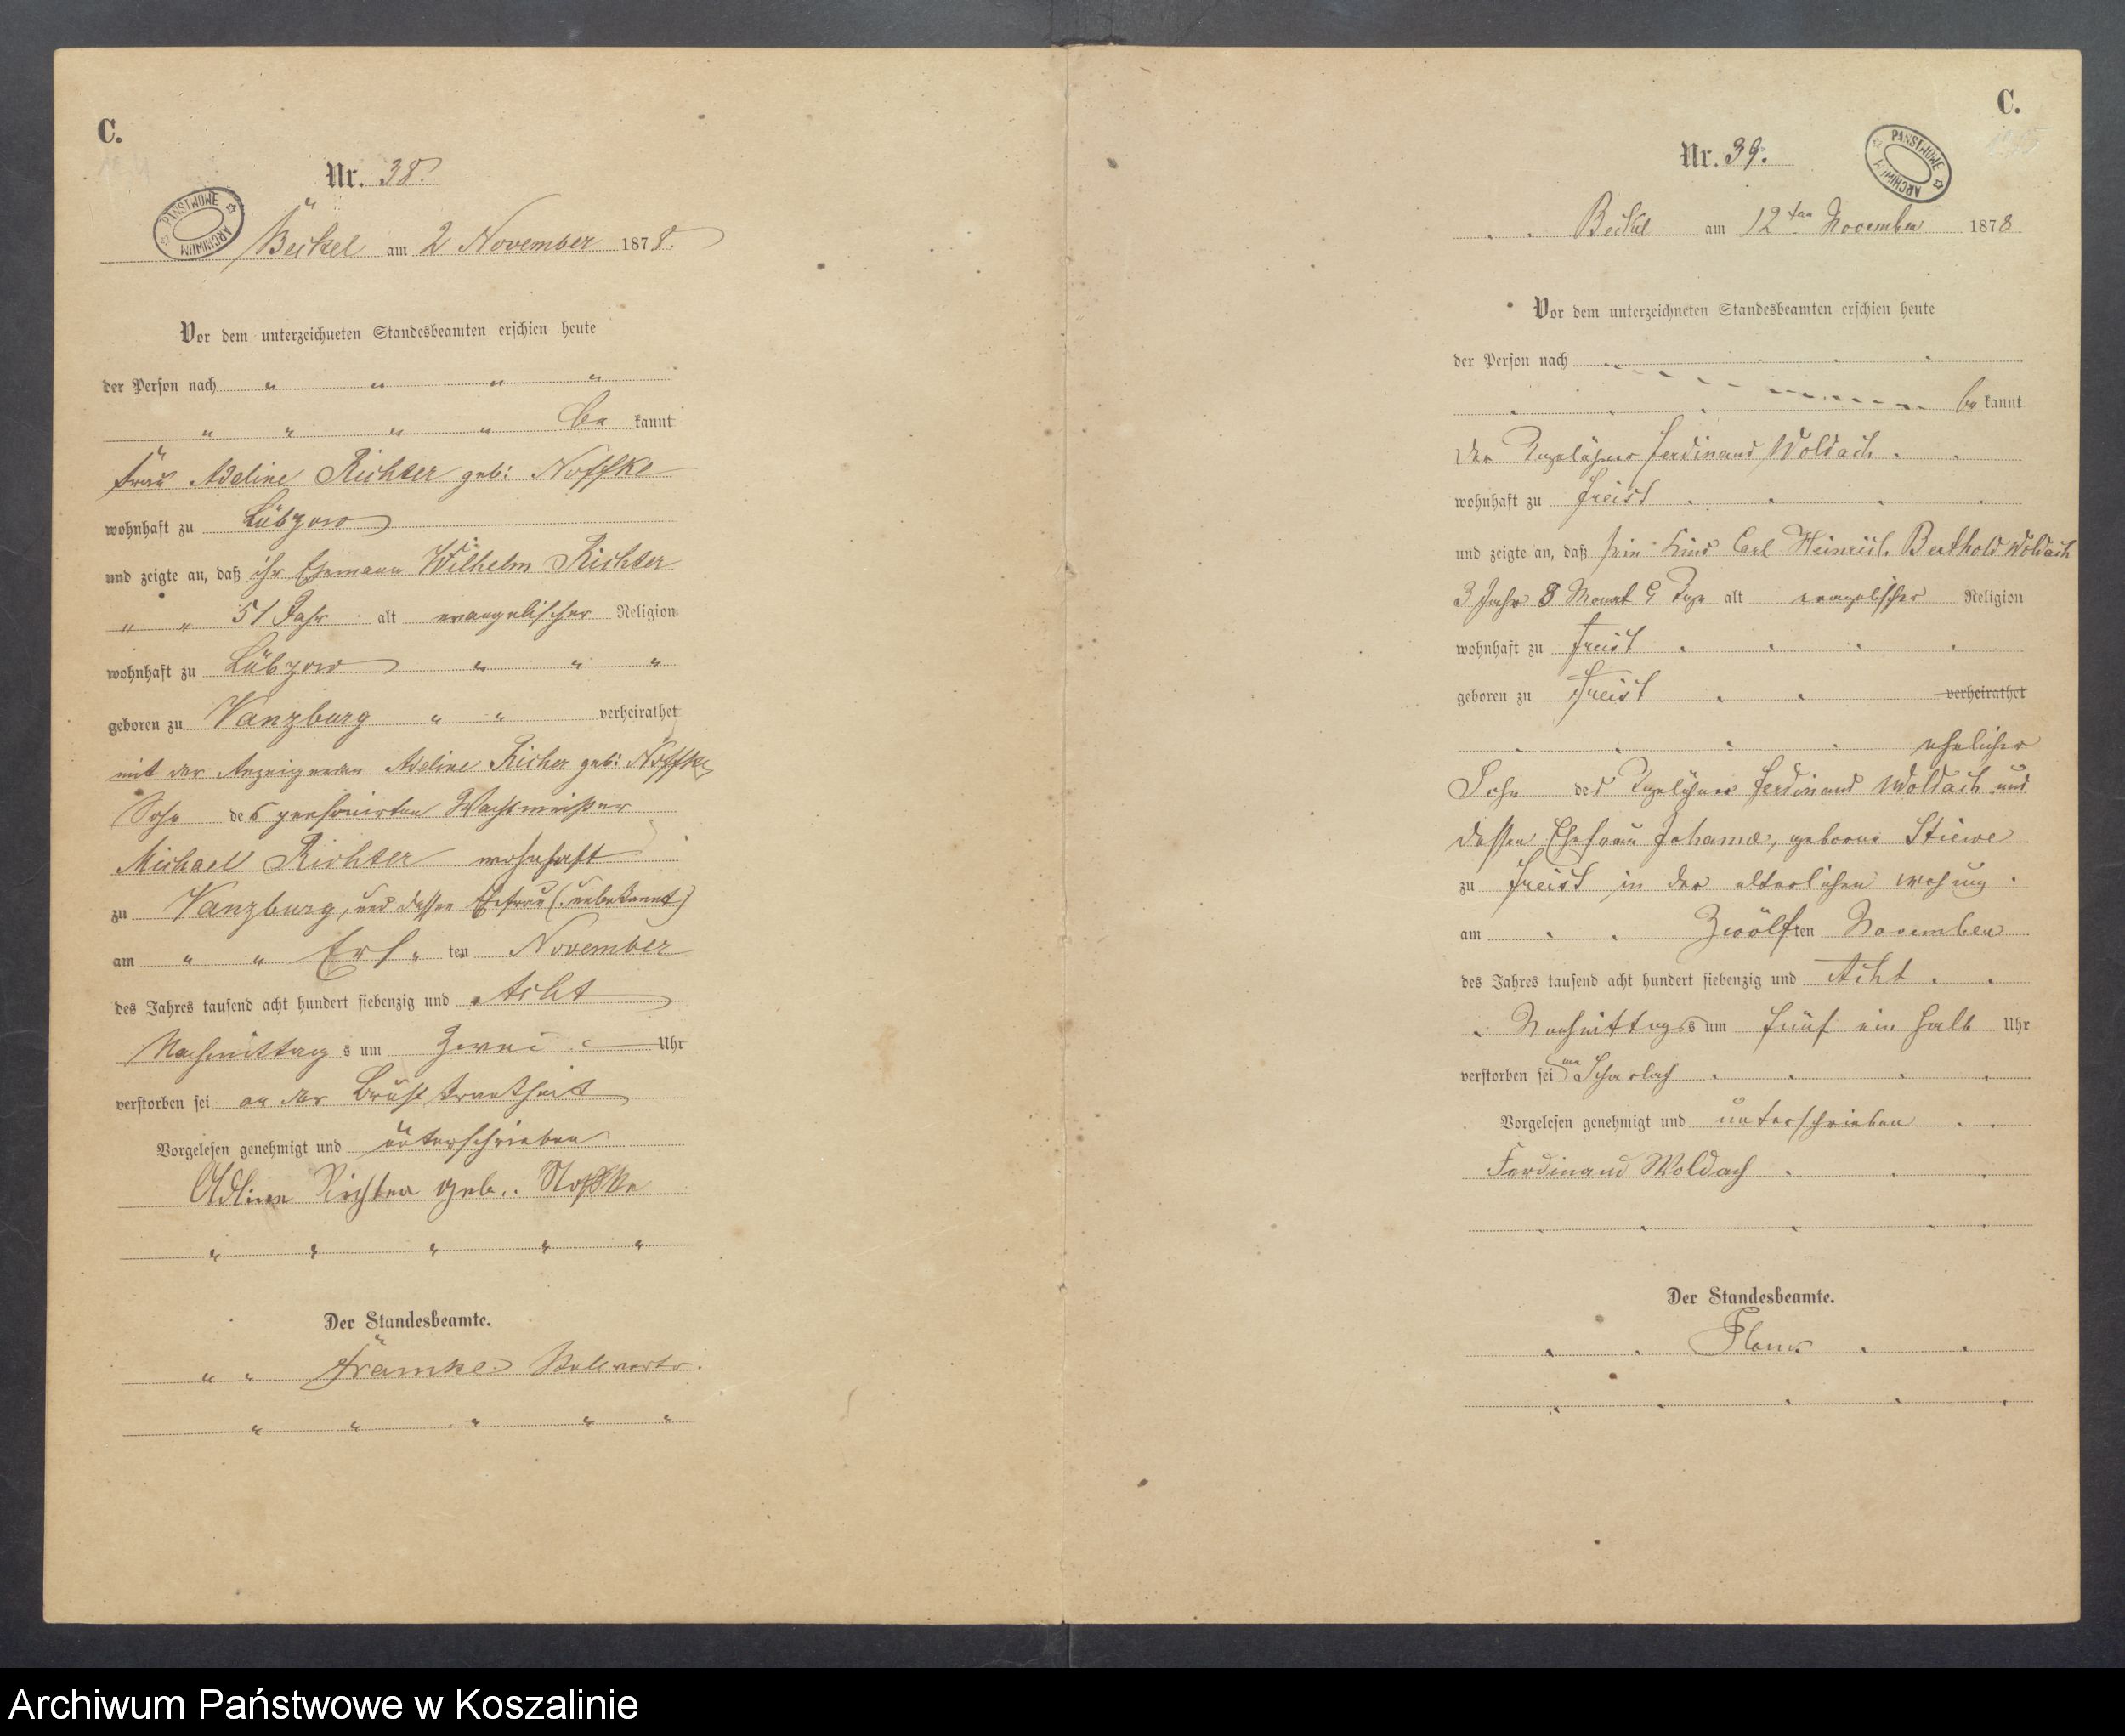 C.
Nr. 38.
PAŃSTWOWE ARCHIWUM
Beckel am 2 November 1878.
Vor dem unterzeichneten Standesbeamten erschien heute
der Person nach " " " "
" " " " be kannt
Frau Adeline Richter geb: Noffke
wohnhaft zu Lübzow
und zeigte an, daß ihr Ehemann Wilhelm Richter
" " 51 Jahr alt evangelischer Religion
wohnhaft zu Lübzow " " "
geboren zu Vanzburg " " verheirathet
mit der Anzeigenden Adeline Richer geb: Noffke
Sohn des pensionirten Wachtmeister
Michael Richter wohnhaft
zu Vanzburg, und dessen Ehefrau (unbekannt)
am " " Ers " ten November
des Jahres tausend acht hundert siebenzig und Acht
Nachmittag s um Zwei Uhr
verstorben sei an der Brust krankheit
Vorgelesen genehmigt und unterschrieben
Adline Richter geb.. Noffke
" " " " "
Der Standesbeamte.
" " Främke Stellvertr.
" " " " "
C.
Nr. 39.
PAŃSTWOWE ARCHIWUM
Beckel am 12ten November 1878
Vor dem unterzeichneten Standesbeamten erschien heute
der Person nach
be kannt
der Tagelöhner Ferdinand Woldach
wohnhaft zu Freist
und zeigte an, daß sein Kind Carl Heinrich Berthold Woldach
3 Jahr 8 Monat 9 Tage alt evangelischer Religion
wohnhaft zu Freist
geboren zu Freist verheirathet
ehelicher
Sohn des Tagelöhner Ferdinand Woldach und
dessen Ehefrau Johanna, geborne Stiewe
zu Freist in der elterlichen wohnung
am Zwölften November
des Jahres tausend acht hundert siebenzig und Acht
Nachmittag s um fünf ein halb Uhr
verstorben sei am Scharlach
Vorgelesen genehmigt und unterschrieben
Ferdinand Woldach
Der Standesbeamte.
Archiwum Państwowe w Koszalinie